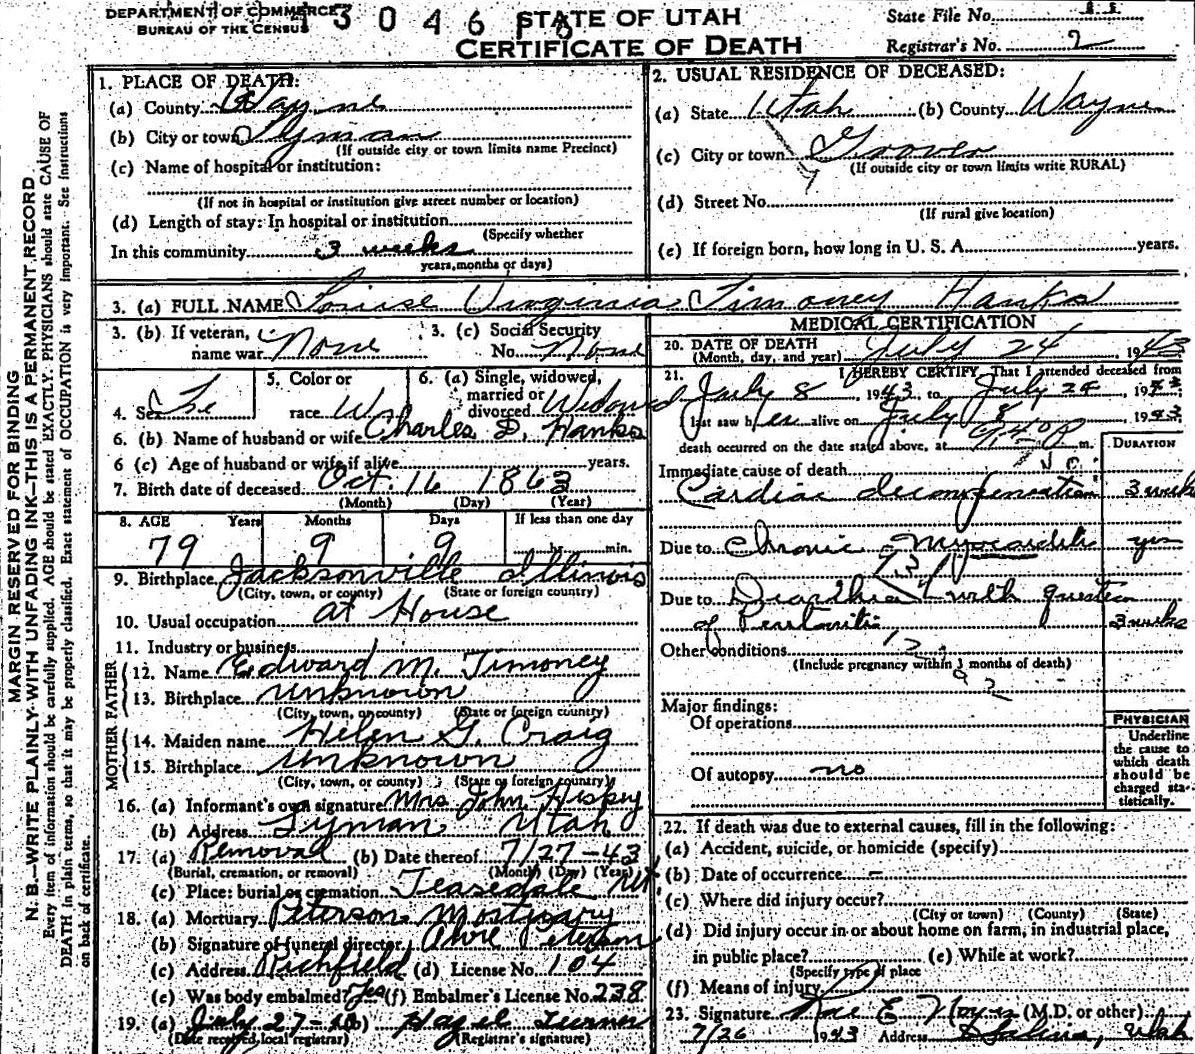 DEPARTMENT OF COMMERCE
BUREAU OF THE CENSUS
STATE OF UTAH
CERTIFICATE OF DEATH
State File No.
Registrar's No. 2
MARGIN RESERVED FOR BINDING
N. B.—WRITE PLAINLY WITH UNFADING INK—THIS IS A PERMANENT RECORD
Every item of information should be carefully supplied. AGE should be stated EXACTLY. PHYSICIANS should state CAUSE OF
DEATH in plain terms, so that it may be properly classified. Exact statement of OCCUPATION is very important. See instructions
on back of certificate.
1. PLACE OF DEATH:
(a) County Wayne
(b) City or town Lyman
(If outside city or town limits name Precinct)
(c) Name of hospital or institution:
(If not in hospital or institution give street number or location)
(d) Length of stay: In hospital or institution
(Specify whether
In this community 3 weeks
years, months or days)
2. USUAL RESIDENCE OF DECEASED:
(a) State Utah (b) County Wayne
(c) City or town Grover
(If outside city or town limits write RURAL)
(d) Street No.
(If rural give location)
(e) If foreign born, how long in U. S. A. years.
3. (a) FULL NAME Louise Virginia Timoney Hanks
3. (b) If veteran, name war None
3. (c) Social Security No. None
4. Sex Fe
5. Color or race W
6. (a) Single, widowed, married or divorced Widowed
6. (b) Name of husband or wife Charles D. Hanks
6 (c) Age of husband or wife if alive years.
7. Birth date of deceased Oct. 16 1863
(Month) (Day) (Year)
8. AGE Years Months Days If less than one day
79 9 9 hr. min.
9. Birthplace Jacksonville Illinois
(City, town, or county) (State or foreign country)
10. Usual occupation at House
11. Industry or business
FATHER
12. Name Edward M. Timoney
13. Birthplace unknown
(City, town, or county) (State or foreign country)
MOTHER
14. Maiden name Helen G. Craig
15. Birthplace Unknown
(City, town, or county) (State or foreign country)
16. (a) Informant's own signature Mrs John Hiskey
(b) Address Lyman Utah
17. (a) Removal (b) Date thereof 7/27-43
(Burial, cremation, or removal) (Month) (Day) (Year)
(c) Place: burial or cremation Teasedale Ut.
18. (a) Mortuary Peterson Mortuary
(b) Signature of funeral director Peterson
(c) Address Richfield (d) License No. 104
(e) Was body embalmed? Yes (f) Embalmer's License No. 238
19. (a) July 27- (b) Hazel Turner
(Date received local registrar) (Registrar's signature)
MEDICAL CERTIFICATION
20. DATE OF DEATH
(Month, day, and year) July 24, 1943
21. I HEREBY CERTIFY, That I attended deceased from
July 8 1943, to July 24, 1943
last saw her alive on July 8, 1943
death occurred on the date stated above, at m.
DURATION
Immediate cause of death
Cardiac decompensation 3 weeks
Due to Chronic Myocarditis yrs
Due to Diarrhea with question
of Peritonitis 3 weeks
Other conditions
(Include pregnancy within 3 months of death)
Major findings:
Of operations
Of autopsy no
PHYSICIAN
Underline the cause to which death should be charged statistically.
22. If death was due to external causes, fill in the following:
(a) Accident, suicide, or homicide (specify)
(b) Date of occurrence
(c) Where did injury occur?
(City or town) (County) (State)
(d) Did injury occur in or about home on farm, in industrial place,
in public place? (e) While at work?
(Specify type of place
(f) Means of injury
23. Signature Rae E. Noyes (M.D. or other)
7/26 1943 Address Salina, Utah